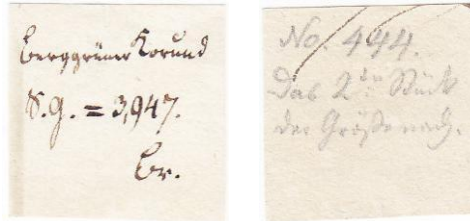 berggrüner Korund
S.G. = 3,947.
Br.
No. 444.
Das 2te Stück
der Größe nach.